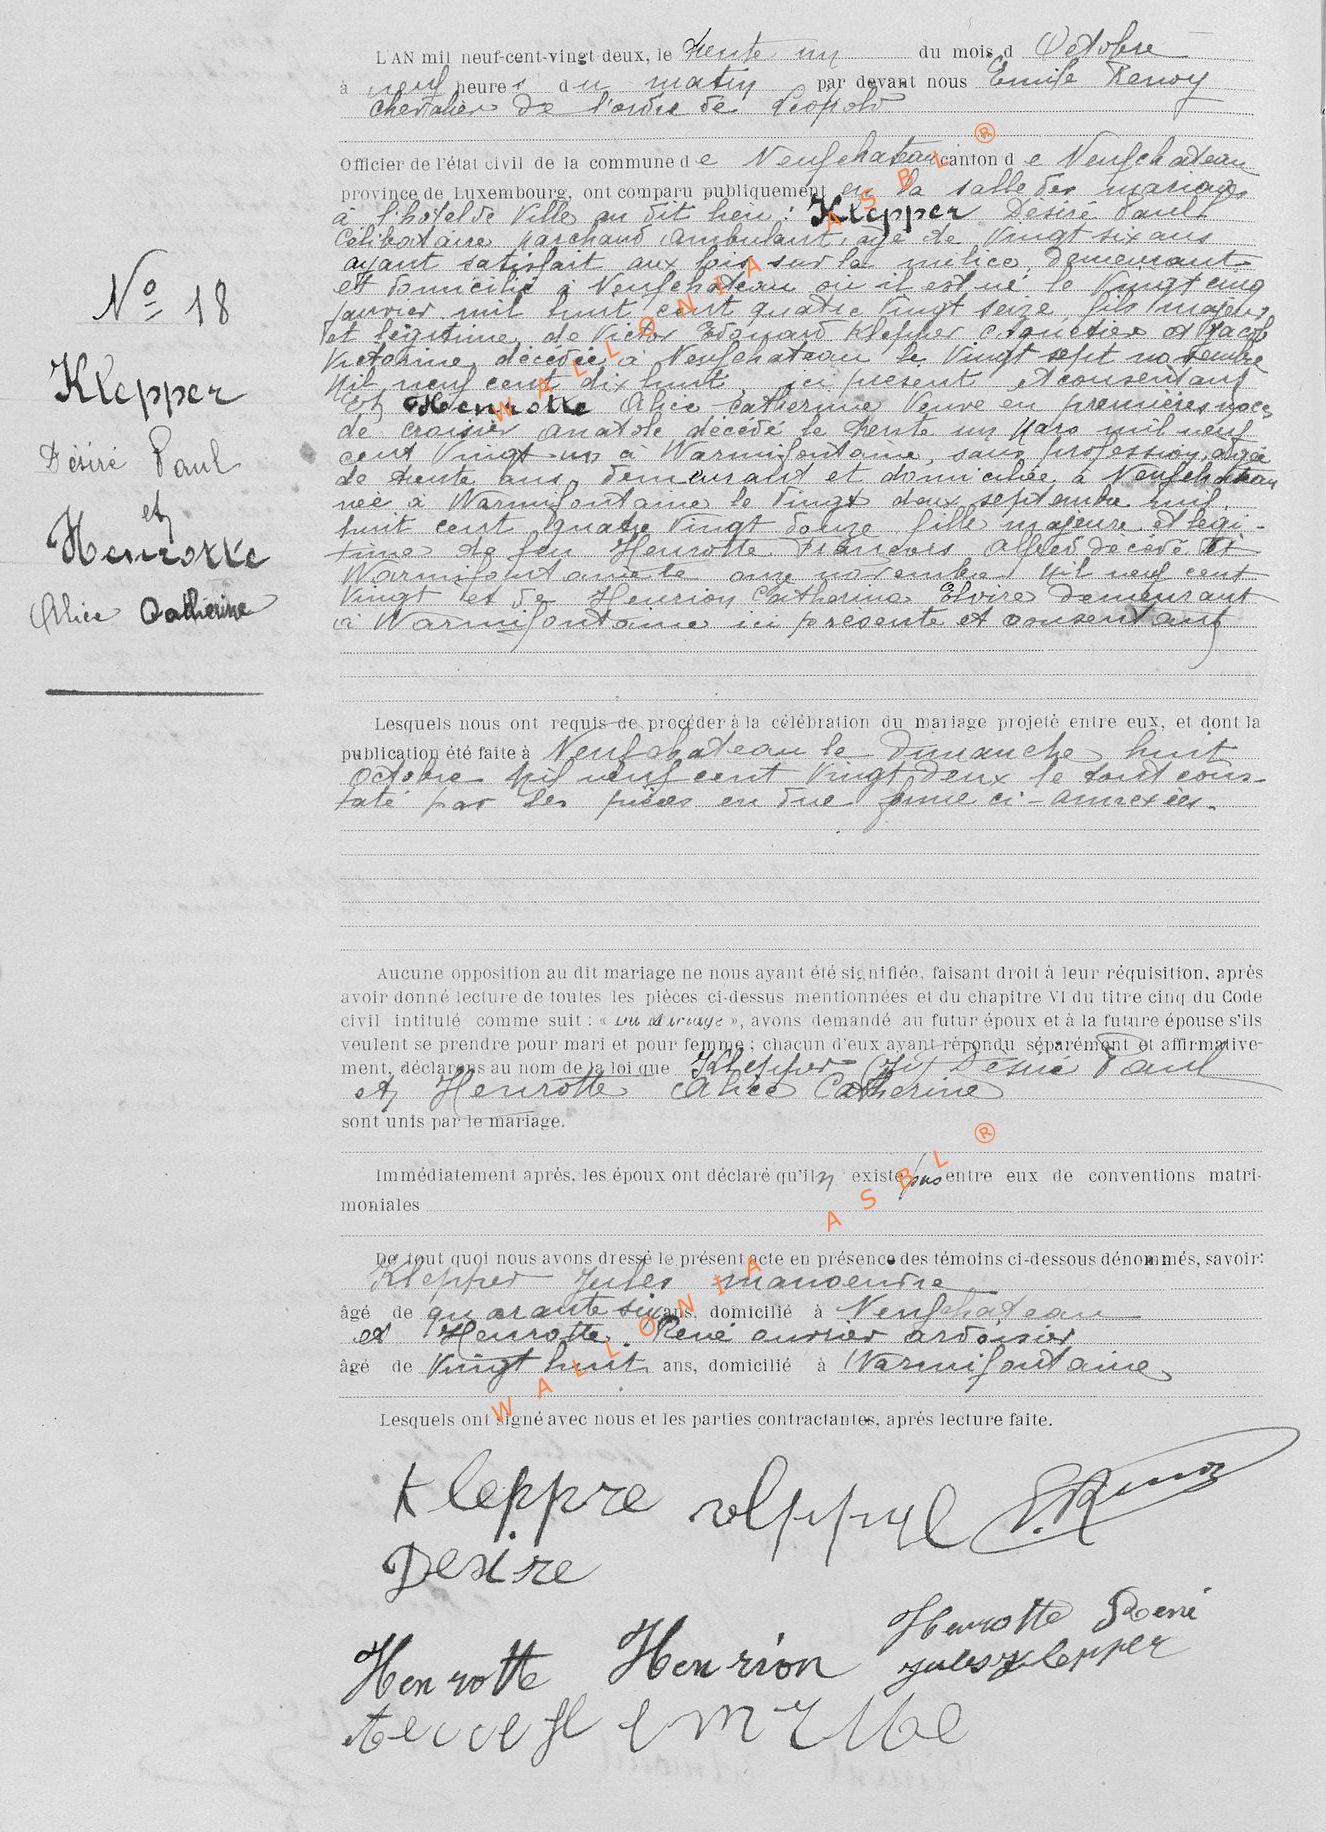 L'AN mil neuf-cent-vingt-deux, le trente un du mois d Octobre
à neuf heures du matin par devant nous Emile Renoy
chevalier de l'ordre de Léopold
Officier de l'état civil de la commune de Neufchateau canton de Neufchateau
province de Luxembourg, ont comparu publiquement en la salle des mariages
à l'hotel de Ville au dit lieu : Klepper Désiré Paul
Célibataire marchand ambulant, age de Vingt six ans
ayant satisfait aux lois sur la milice demeurant
et domicilié à Neufchateau où il est né le Vingt cinq
Janvier mil huit cent quatre Vingt seize, fils majeur
et légitime de Victor Edouard Klepper et Jacob
Victorine, décédée à Neufchateau le Vingt sept novembre
Mil neuf cent dix huit, ici présent et consentant
Et Henrotte Alice Catherine Veuve en premières noces
de croisier anatole décédé le trente un Mars mil neuf
cent Vingt un à Warmifontaine, sans profession, agée
de trente ans, demeurant et domiciliée à Neufchateau
née à Warmifontaine le Vingt deux septembre mil
huit cent quatre Vingt douze fille majeure et légi-
time de feu Henrotte François Alfred décédé à
Warmifontaine le onze novembre Mil neuf cent
Vingt et de Henrion Catherine Elvire demeurant
à Warmifontaine ici présente et consentant
N° 18
Klepper
Désiré Paul
et
Henrotte
Alice Catherine
Lesquels nous ont requis de procéder à la célébration du mariage projeté entre eux, et dont la
publication été faite à Neufchateau le Dimanche huit
octobre Mil neuf cent Vingt deux le tout cons-
taté par les pièces en due forme ci-annexées.
Aucune opposition au dit mariage ne nous ayant été signifiée, faisant droit à leur réquisition, après
avoir donné lecture de toutes les pièces ci-dessus mentionnées et du chapitre VI du titre cinq du Code
civil intitulé comme suit : « Du Mariage », avons demandé au futur époux et à la future épouse s'ils
veulent se prendre pour mari et pour femme ; chacun d'eux ayant répondu séparément et affirmative-
ment, déclarons au nom de la loi que Klepper Désiré Paul
et Henrotte Alice Catherine
sont unis par le mariage.
Immédiatement après, les époux ont déclaré qu'il n existe pas entre eux de conventions matri-
moniales
De tout quoi nous avons dressé le présent acte en présence des témoins ci-dessous dénommés, savoir:
Klepper Jules manoeuvre
âgé de quarante six ans, domicilié à Neufchateau
et Henrotte René ouvrier ardoisier
âgé de Vingt huit ans, domicilié à Warmifontaine
Lesquels ont signé avec nous et les parties contractantes, après lecture faite.
Kleppre
E. Renoy
Desire
Henrotte Henrion Henrotte René
Jules Klepper
WALLONIA ASBL ®
WALLONIA ASBL ®